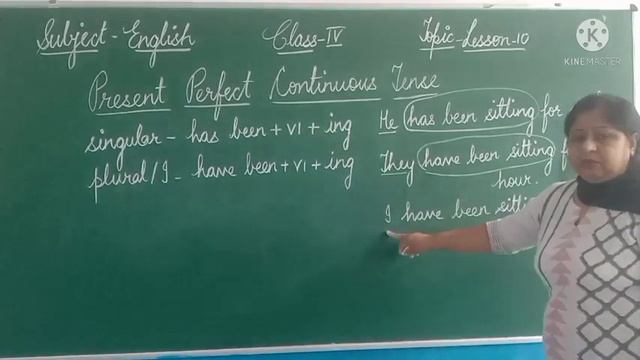 Subject - English Class - IV Topic - Lesson - 10
KINEMASTER
Present Perfect Continuous Tense
singular - has been + V1 + ing
plural / I - have been + V1 + ing
He has been sitting for
They have been sitting
hour.
I have been